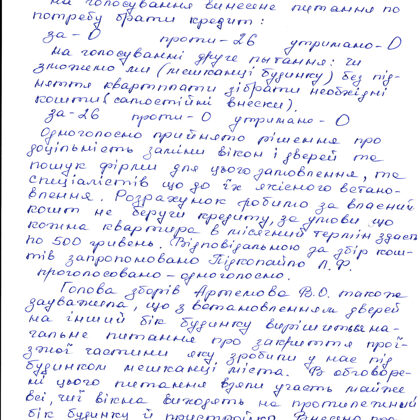 на голосування винесене питання по
потребу брати кредит:
за - 0 проти - 26 утримано - 0
На голосуванні друге питання: чи
зможемо ми (мешканці будинку) без під-
няття квартплати зібрати необхідні
кошти (самостійні внески).
за - 26 проти - 0 утримано - 0
Одноголосно прийнято рішення про
доцільність заміни вікон і дверей та
пошук фірми для цього замовлення, та
спеціалістів що до їх якісного встано-
влення. Розрахунок робимо за власний
кошт не беручи кредиту, за умови що
кожна квартира в місячний термін здасть
по 500 гривень. Відповідальною за збір кош-
тів запропоновано Підкопайло Л.Ф.
проголосовано - одноголосно.
Голова зборів Артемова В.О. також
зауважила, що з встановленням дверей
на інший бік будинку вирішить на-
гальне питання про закриття прої-
зжої частини яку зробили у нас під
будинком мешканці міста. В обговоре-
ні цього питання взяли участь майже
всі, чиї вікна виходять на протилежний
бік будинку й пристройка. Внесено про